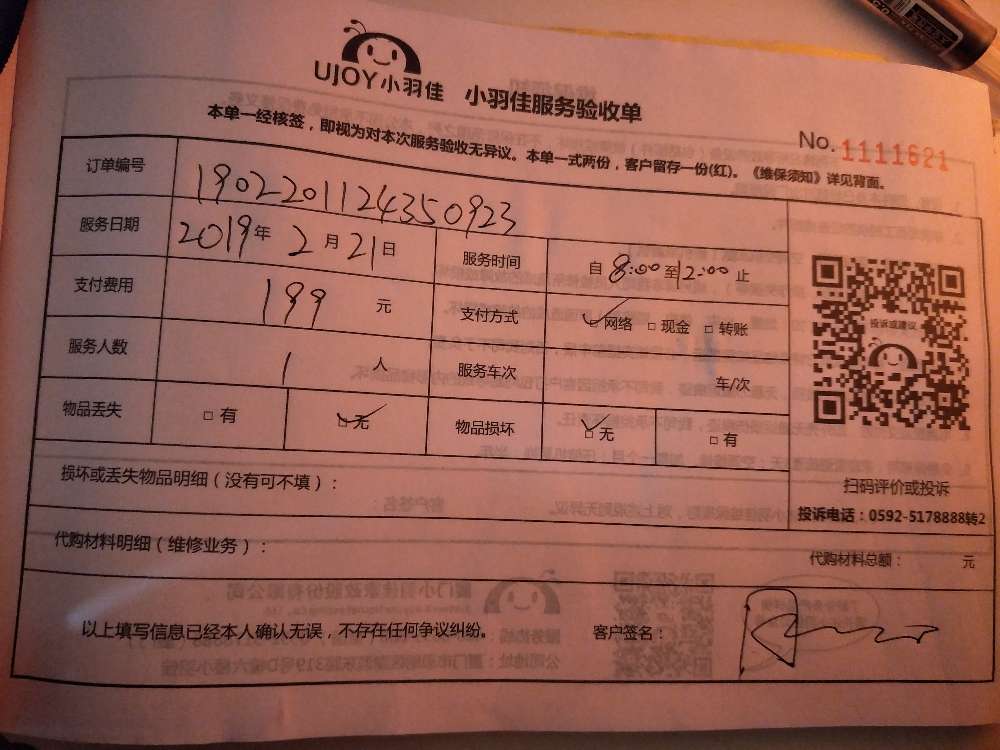 UJOY小羽佳 小羽佳服务验收单
No. 1111621
本单一经核签，即视为对本次服务验收无异议。本单一式两份，客户留存一份(红)。《维保须知》详见背面。
订单编号 1902201124350923
服务日期 2019年 2月21日 服务时间 自 8:00 至 12:00 止
支付费用 199 元 支付方式 ☑网络 □现金 □转账
服务人数 1 人 服务车次 车/次
物品丢失 □有 ☑无 物品损坏 ☑无 □有
投诉或建议
扫码评价或投诉
投诉电话：0592-5178888转2
损坏或丢失物品明细（没有可不填）：
代购材料明细（维修业务）： 代购材料总额： 元
以上填写信息已经本人确认无误，不存在任何争议纠纷。 客户签名：